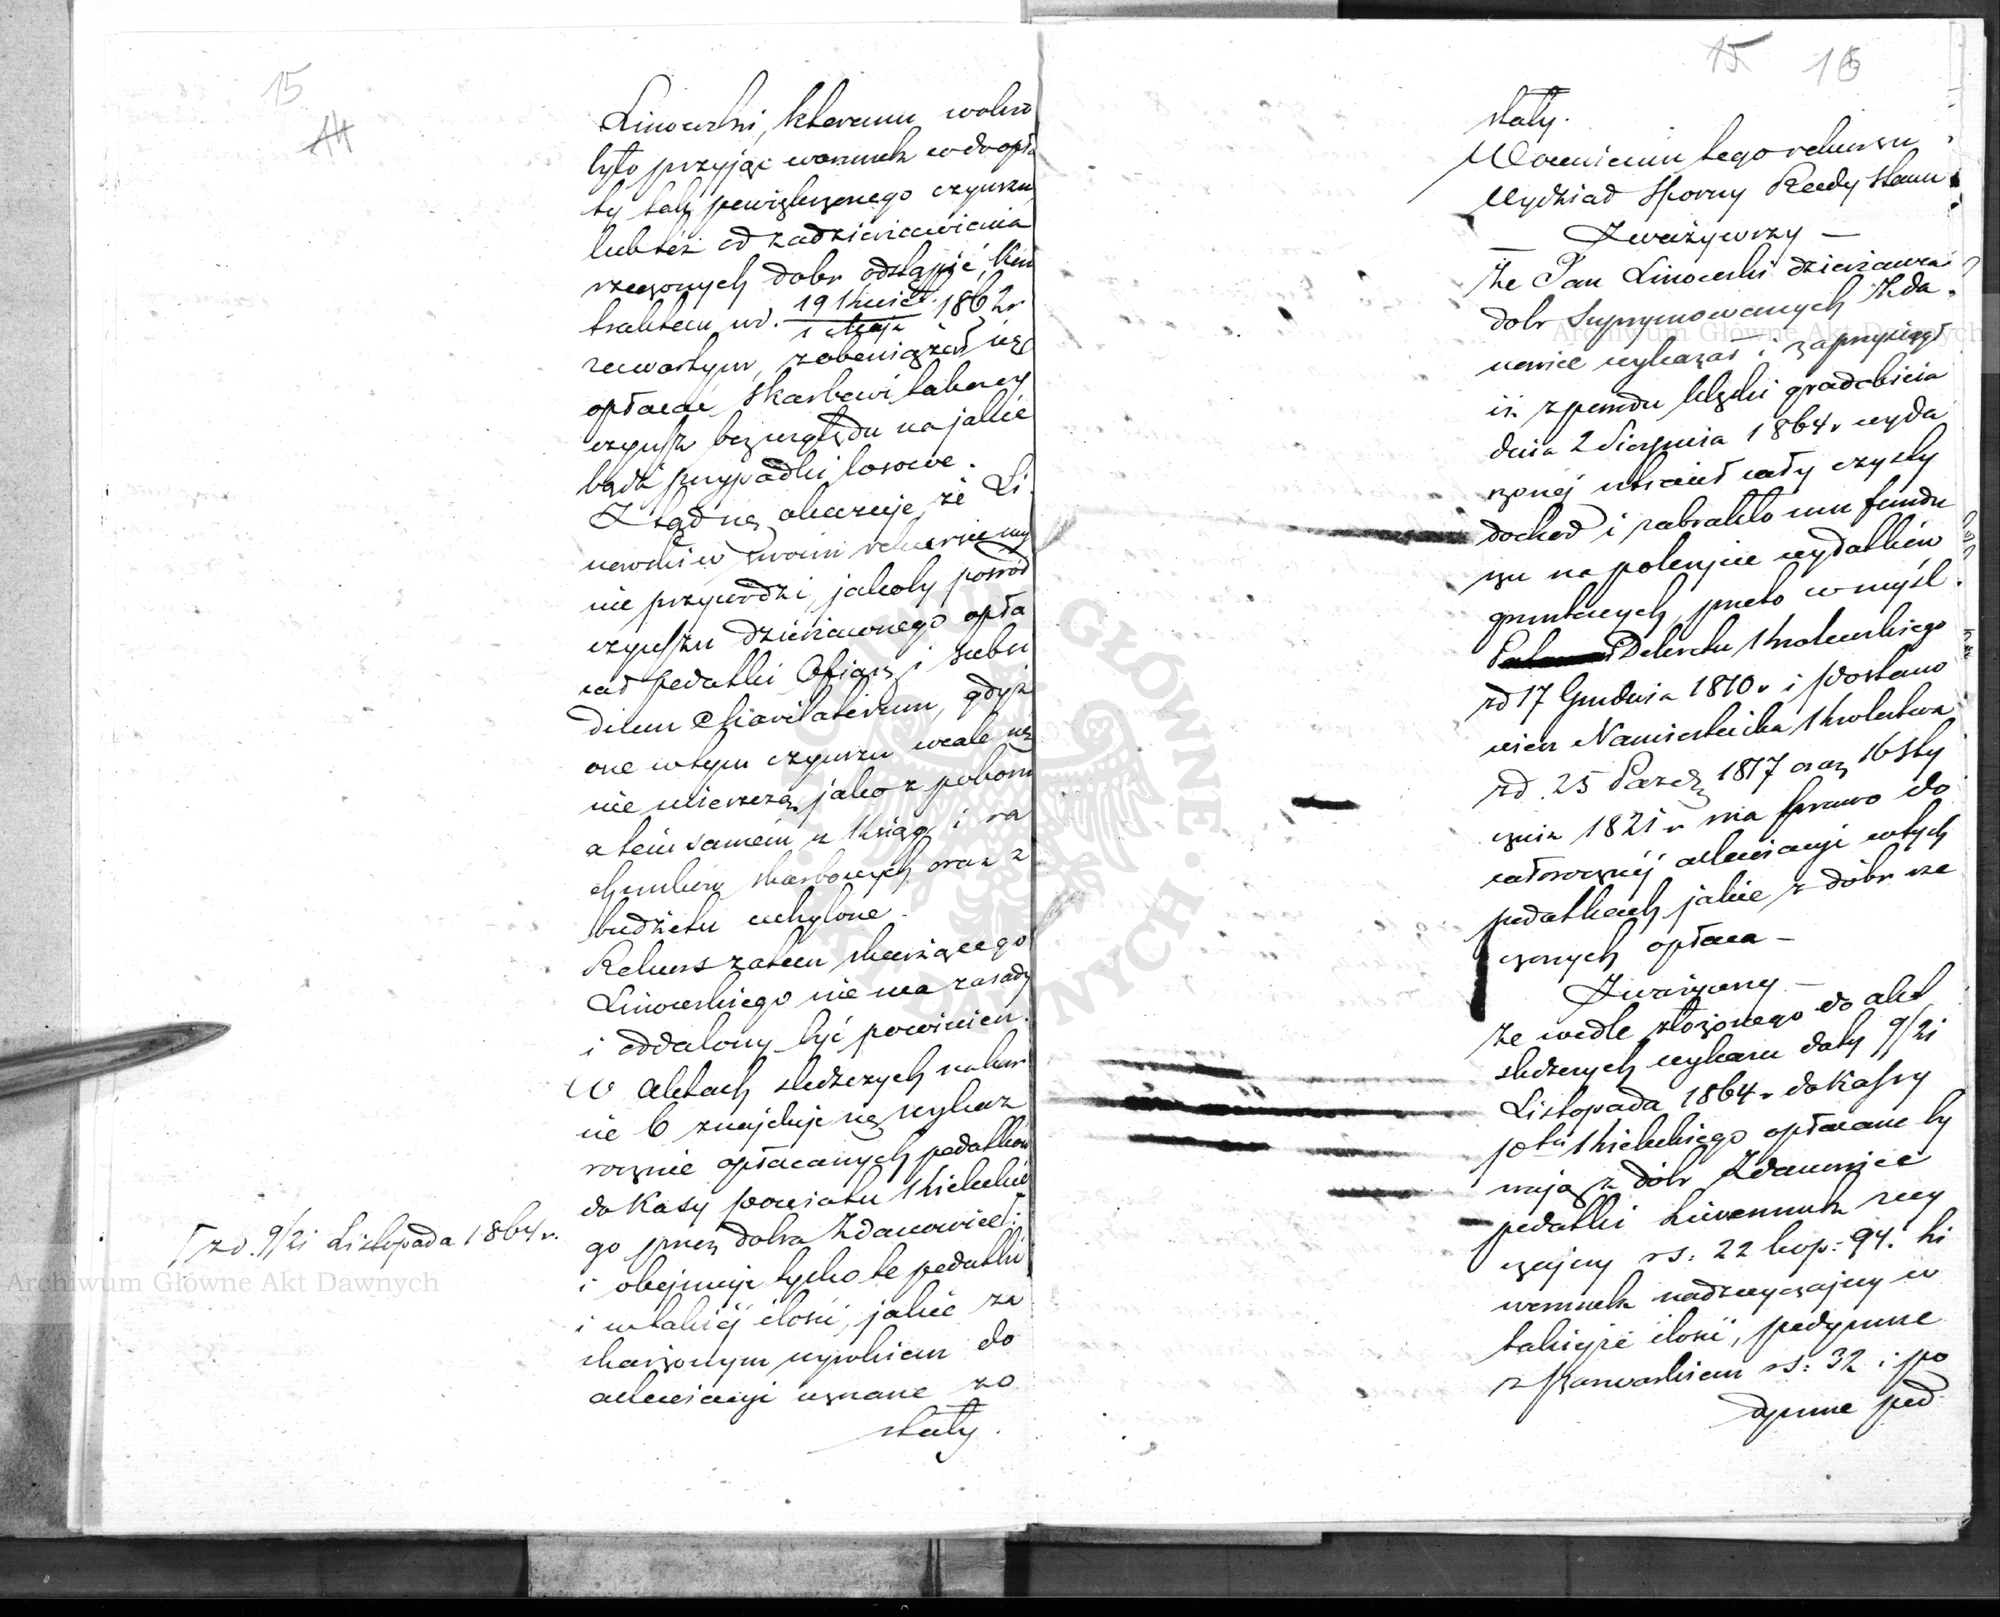 15
14
Linowski, któremu wolno
było przyjąć warunek wdoopła
ty tak powiększonego czynszu,
lub też od zadzierżawienia
rzeczonych dobr odstąpić, kon
traktem wd. 19 Kwiet. / 1 Maja 1862 r
zawartym, zobowiązał się
opłacać Skarbowi takowy
czynsz bez względu na jakie
bądź przypadki losowe.
Ztąd się okazuje, że Li
nowski w swoim rekursie my
nie przywodzi, jakoby pośród
czynszu dzierżawnego opła
cał podatki Ofiarę i Subsi
dium Charitativum, gdyż
one wtym czynszu wcale się
nie mieszczą, jako z poboru
a tém samém z Ksiąg i ra
chunków skarbowych oraz z
budżetu uchylone.
Rekurs zatem skarżącego
Linowskiego nie ma zasady
i oddalony być powinien.
W Aktach śledczych na kar
cie 6 znajduje się wykaz
rocznie opłacanych podatków
do Kasy Powiatu Kieleckie
go przez dobra Zdanowice:
i obejmuje tylko te podatki
i w takiéj ilości, jakie za
skarżonym wyrokiem do
allewiacyi uznane zo
stały.
z d. 9/21 Listopada 1864 r.
15 16
stały.
W ocenieniu tego rekursu
Wydział Sporny Rady Stanu
Zważywszy —
Że Jan Linowski dzierżawca
dobr Suprymowanych Zda
nowice wykazał i zaprzysiągł
iż z powodu klęski gradobicia
dnia 2 Sierpnia 1864 r wyda
rzonéj utracił cały czysty
dochod i zabrakło mu fundu
szu na pokrycie wydatków
gruntowych, przeto w myśl
Dekretu Królewskiego
z d 17 Grudnia 1810 r i Postano
wień Namiestnika Królestwa
z d. 25 Paźdz 1817 oraz 16 Sty
cznia 1821 r ma prawo do
całorocznéj allewiacyi wtych
podatkach jakie z dóbr rze
czonych opłaca —
Zważywszy —
Że wedle złożonego do akt
śledczych wykazu daty 9/21
Listopada 1864 r do Kassy
ptu Kieleckiego opłacane by
mają z dóbr Zdanowice
podatki liwerunek zwy
czajny rs: 22 kop: 94. li
werunek nadzwyczajny w
takiejże ilości, podymne
z szarwarkiem rs: 32 i po
dymne pod
Archiwum Główne Akt Dawnych
Archiwum Główne Akt Dawnych